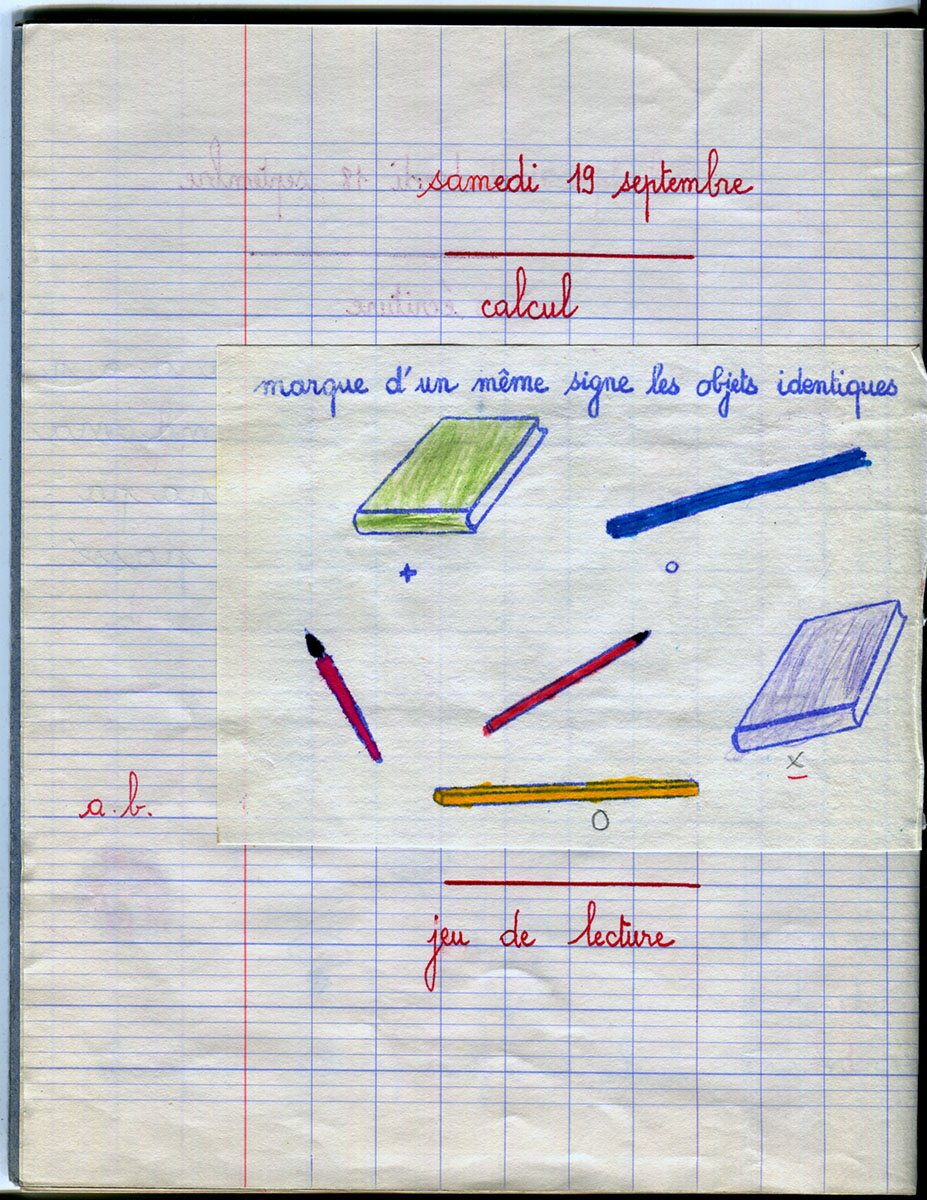 samedi 19 septembre
calcul
marque d'un même signe les objets identiques
+
o
x
a.b.
O
jeu de lecture